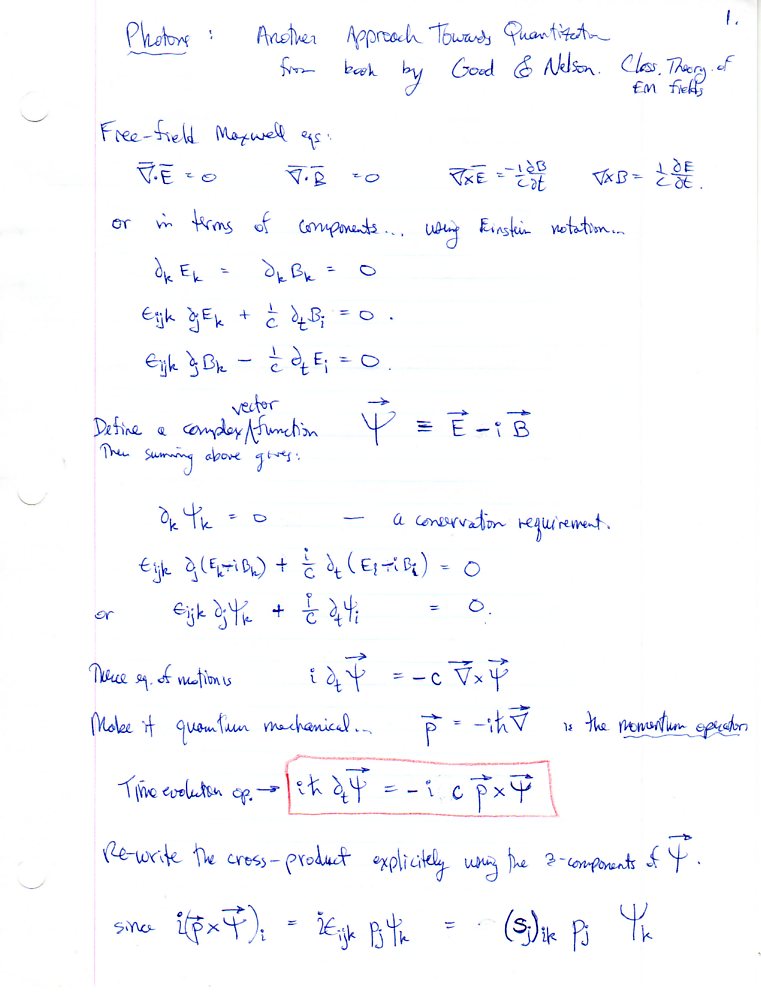 1.
Photons : Another Approach Towards Quantization
from book by Good & Nelson. Class. Theory of
EM fields
Free-field Maxwell eqs:
∇⃗·E⃗ = 0   ∇⃗·B⃗ = 0   ∇×E = -1/c ∂B/∂t   ∇×B = 1/c ∂E/∂t.
or in terms of components... using Einstein notation...
∂k Ek = ∂k Bk = 0
ϵijk ∂j Ek + 1/c ∂t Bi = 0 .
ϵijk ∂j Bk − 1/c ∂t Ei = 0.
Define a complex vector function   Ψ⃗ ≡ E⃗ − i B⃗
Then summing above gives:
∂k Ψk = 0   — a conservation requirement.
ϵijk ∂j (Ek−iBk) + i/c ∂t (Ei−iBi) = 0
or   ϵijk ∂j Ψk + i/c ∂t Ψi = 0.
Thence eq. of motion is   i ∂t Ψ⃗ = −c ∇⃗×Ψ⃗
Make it quantum mechanical...   p⃗ = −iħ∇⃗ is the momentum operator
Time evolution op. → iħ ∂t Ψ⃗ = − i c p⃗ × Ψ⃗
Re-write the cross-product explicitely using the 3-components of Ψ⃗.
since i(p⃗×Ψ⃗)i = iϵijk pj Ψk = (Sj)ik pj Ψk